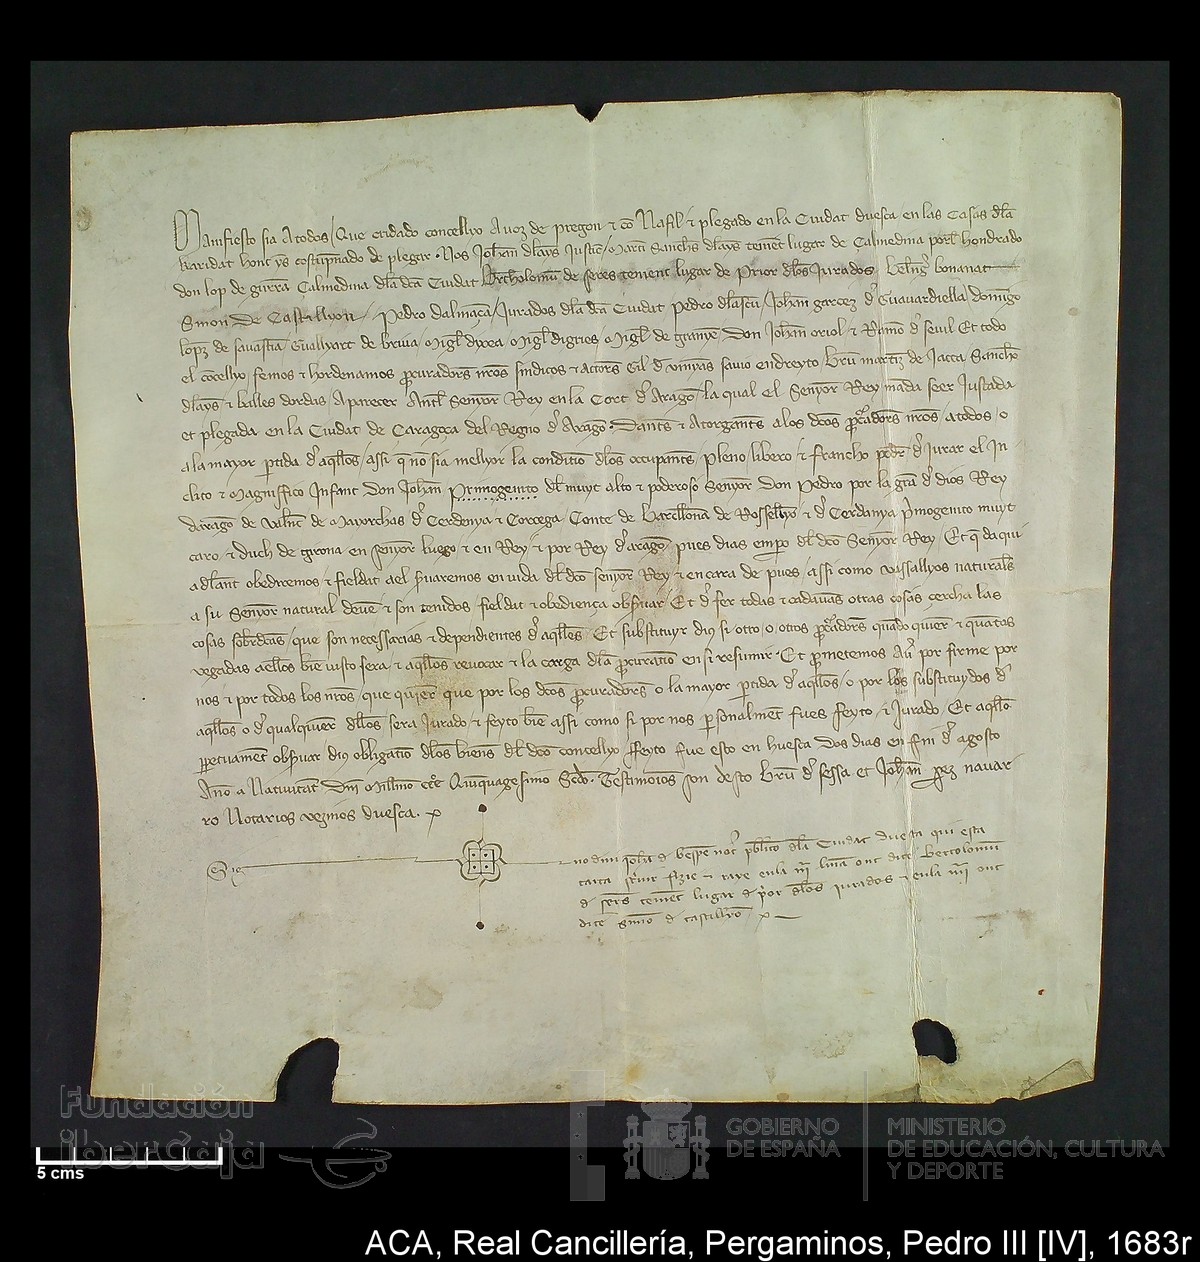 Manifiesto sia a todos / Que cridado concellyo a voz de pregon & co Nafil & plegado en la Ciudat duesca en las Casas dla
Karidat hont ys costupnado de plegar. Nos Johan dlays Justic / Martin Sanchs dlays tenient lugar de Calmedina porl hondrado
don lop de gurra Calmedina dla dca Ciudat Bertholomeu de seres tenient lugar de Prior dlos Jurados Belnger bonanat
Simon de Castillyon / Pedro dalmaçan / Jurados dla dca Ciudat Pedro dlascu / Johan garcez d Guauardiella domingo
lopz de sauastian Guallyart de bruia
el concellyo / femos & hordenamos procuradors nros sindicos & actors Gil d vinyas sauio en dreyto Bru martz de Jacca Sancho
dlays & balles dordas / A parecer Antl Senyor Rey en la Cort d Aragon / la qual el Senyor Rey manda seer Justada
et plegada en la Ciudat de Caragoça del Regno d Aragon. Dants & Atorgants a los dcos procuradors nros a todos / o
a la mayor partida d aqllos / assi q no sia mellyor la condicion dlos occupants / pleno / libero & francho poder d Jurar el In
clito & Magniffico Infant Don Johan Primogenito dl muyt alto & poderoso Senyor Don Pedro por la gra d dios Rey
daragon de Valenc de Mayorchas d Cerdenya & Corcega / Conte de Barcllona de Rossellyo & d Cerdanya primogenito muyt
caro / & duch de girona en senyor luego & en Rey & por Rey d aragon / pues dias empo dl dco Senyor Rey / Et q daqui
adlant obediremos & fieldat ael seruaremos en vida dl dco senyor Rey & en cara de pues / assi como vassallyos naturals
a su Senyor natural deuen & son tenidos fieldat & obediença obseruar / Et d fer todas & cadaunas otras cosas çercha las
cosas sobrdcas / que son necessarias & dependientes d aqllas Et substituyr dius si otro / o / otros procuradors quando quier & quantas
vegadas aellos bien visto sera / & aqllos reuocar & la carga dla procuracion en si resumir. Et prometemos Auer por firme por
nos & por todos los nros / que quier que por los dcos procuradors o la mayor partida d aqllos / o por los substituydos d
aqllos o d qualquier dllos sera Jurado & feyto bien assi como si por nos personalment fues feyto & Jurado / Et aqllo
perpetuament obseruar dius obligacion dlos biens dl dco concellyo ffeyto fue esto en huesca dos dias en fin d agosto
Anno a Natiuitat Dni Millimo CCC Quinquagesimo Scdo. Testimonios son desto Bru d sessa et Johan perez nauar
ro Notarios vezinos duesca.
Sig
no d mi Johan d bespen not publico dla Ciudat duesca qui esta
carta screuir fizie & raye en la IIIª linea ont dice Bertolomeu
d seres tenient lugar d prior dlos jurados & en la IIIIª ont
dice simon d castillyon
5 cms
Fundación
iberCaja
GOBIERNO
DE ESPAÑA
MINISTERIO
DE EDUCACIÓN, CULTURA
Y DEPORTE
ACA, Real Cancillería, Pergaminos, Pedro III [IV], 1683r